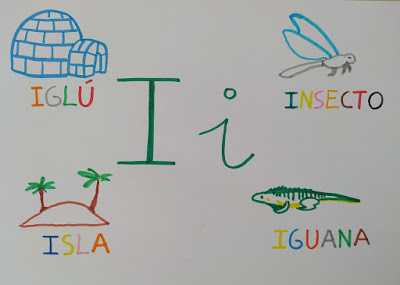 IGLÚ
INSECTO
I i
ISLA
IGUANA